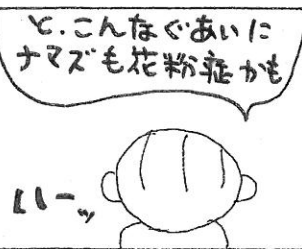 と、こんなぐあいに
ナマズも花粉症かも
いーッ